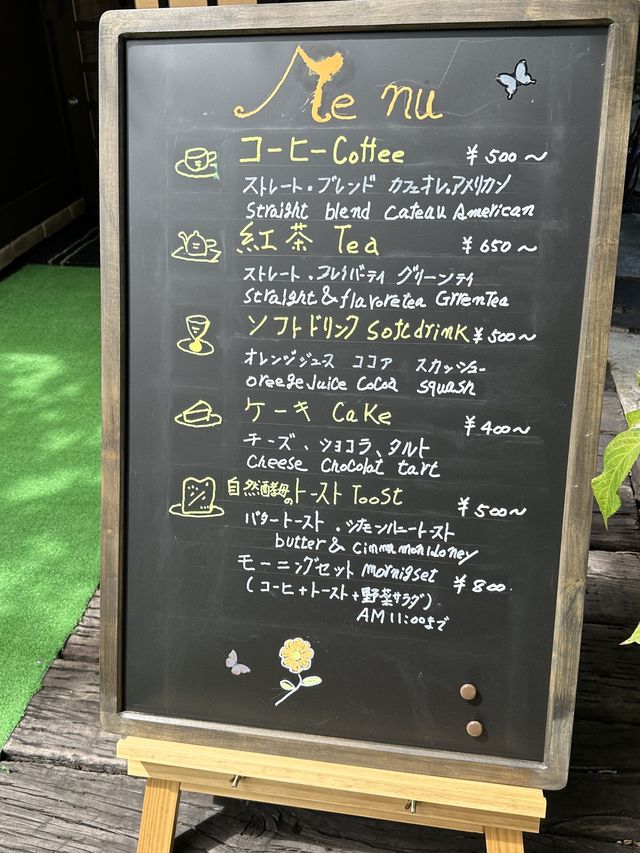 Menu
コーヒーCoffee ¥500〜
ストレート・ブレンド カフェオレ、アメリカン
Straight blend cateau American
紅茶 Tea ¥650〜
ストレート・フレーバーティ グリーンティ
Straight & flavoretea GrrenTea
ソフトドリンク Softdrink ¥500〜
オレンジジュース ココア スカッシュー
oreegeJuice CoCoa squash
ケーキ CaKe ¥400〜
チーズ、ショコラ、タルト
Cheese Chocolat tart
自然酵母のトースト Toost ¥500〜
バタートースト・シナモンハニートースト
butter &
モーニングセット Mornigset ¥800
(コーヒ+トースト+野菜サラダ)
AM 11:00まで